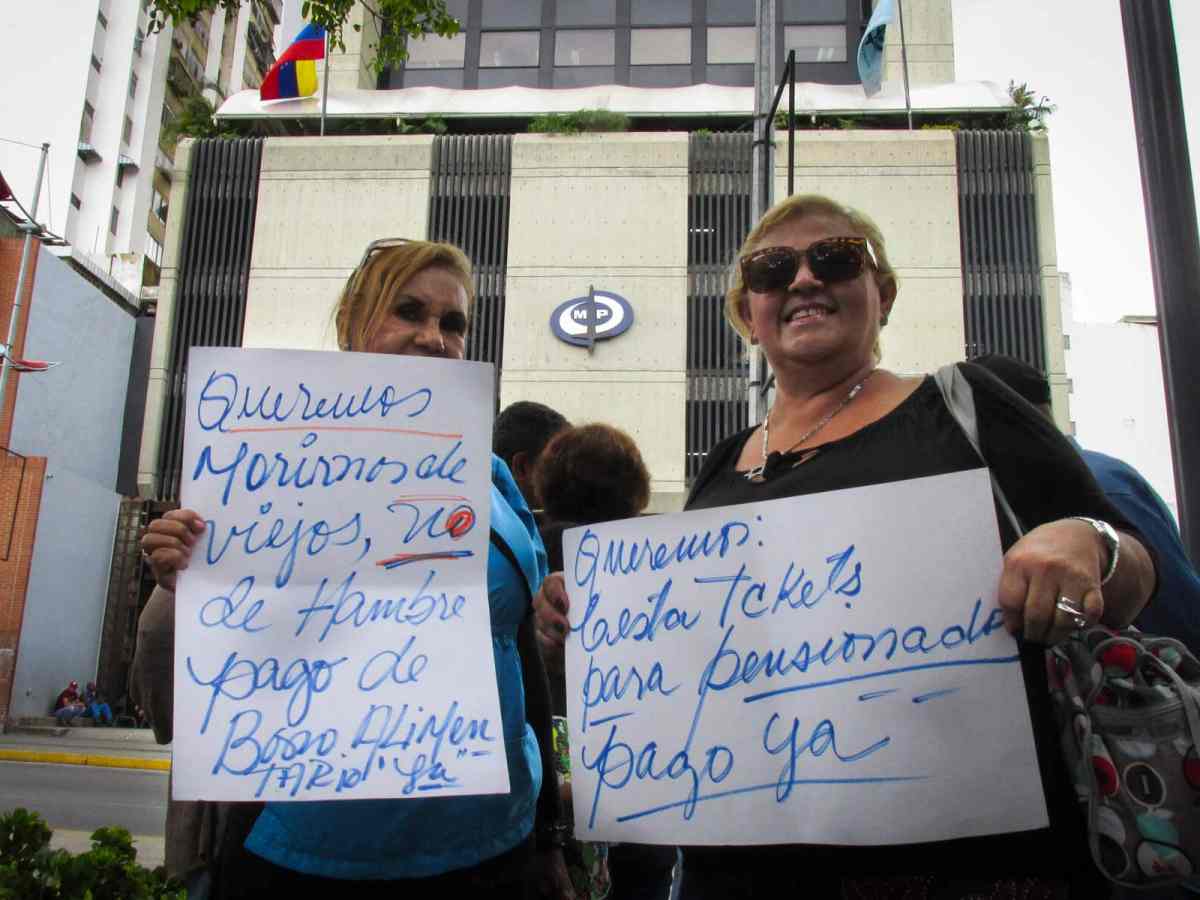 MP
Queremos
Morirnos de
viejos, no
de Hambre
pago de
Bono ALimen
TARio "ya"
Queremos:
Cesta Tickets
para pensionados
pago ya